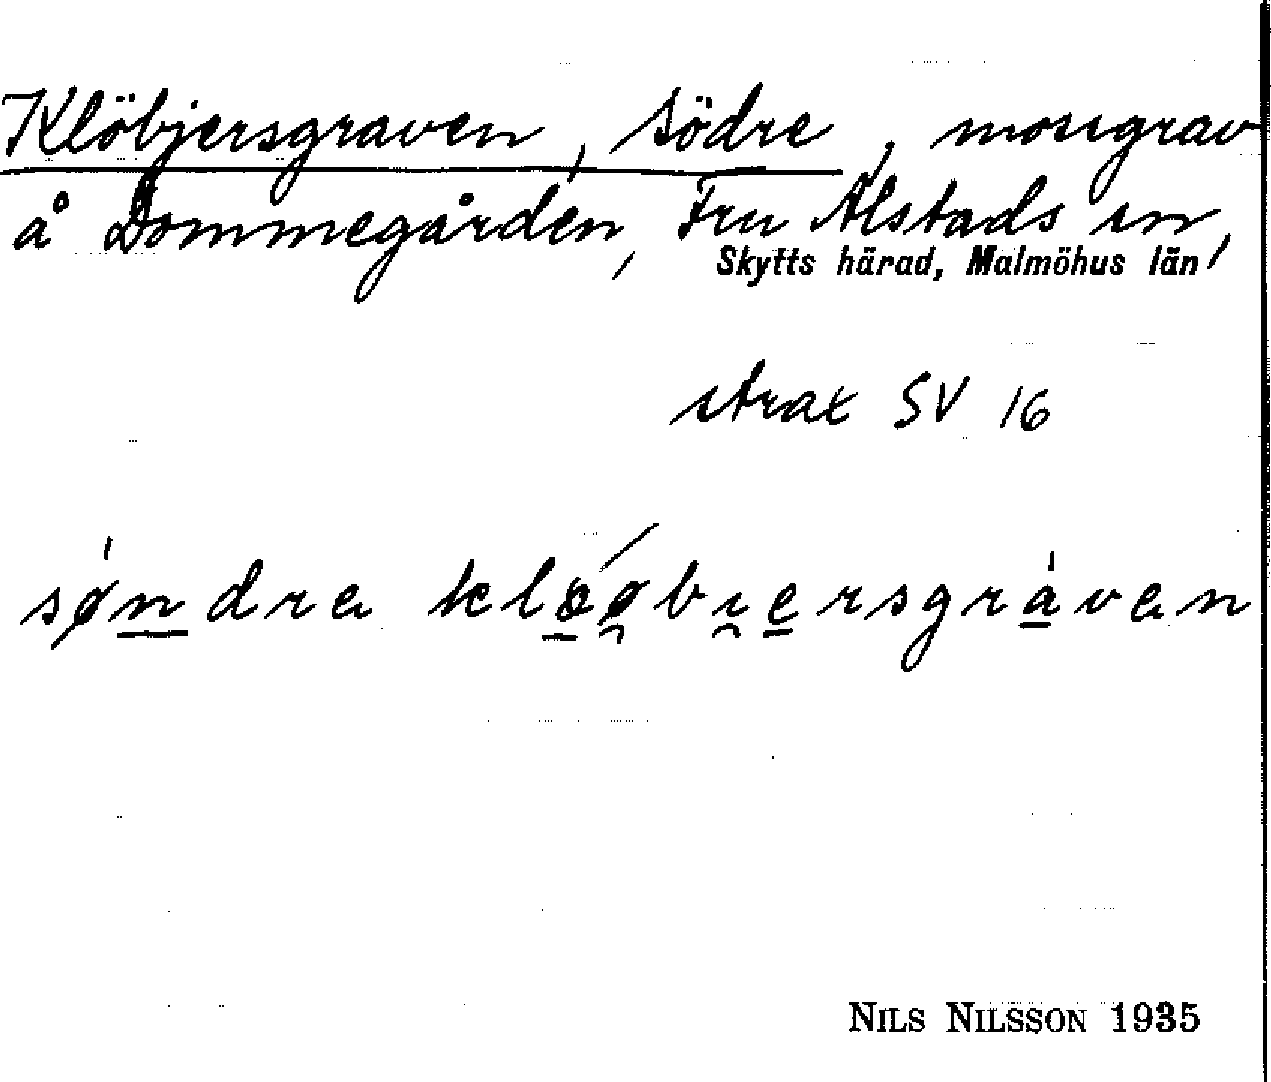 Klöbjersgraven, södre, mosigrav
å Dommegården, Fru Alstads sn,
Skytts härad, Malmöhus län
strax SV 16
sǿndre kloǿbiersgráven
NILS NILSSON 1935